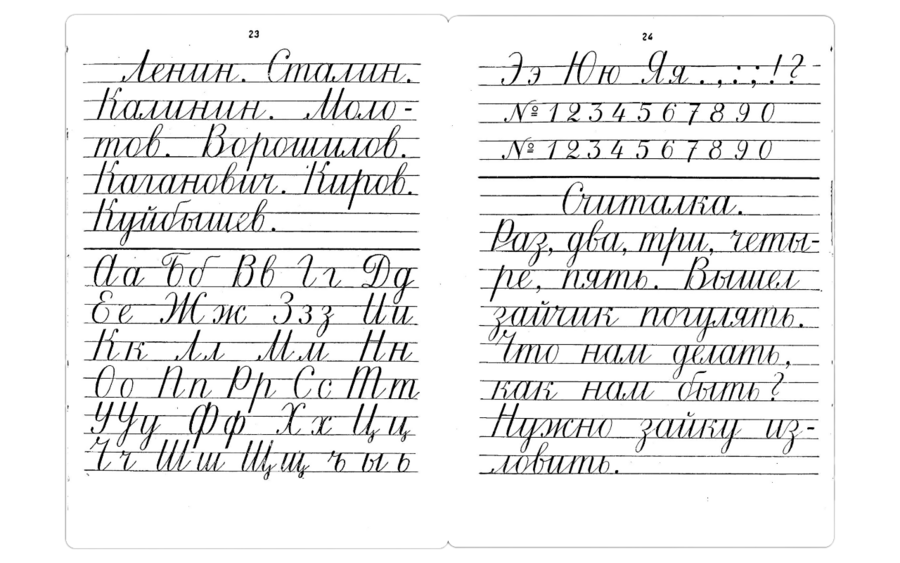 23
Ленин. Сталин.
Калинин. Моло-
тов. Ворошилов.
Каганович. Киров.
Куйбышев.
Аа Бб Вв Гг Дд
Ее Жж Ззз Ии
Кк Лл Мм Нн
Оо Пп Рр Сс Тт
УУу Фф Хх Цц
Чч Шш Щщ ъ ы ь
24
Ээ Юю Яя . , : ; ! ?
№ 1 2 3 4 5 6 7 8 9 0
№ 1 2 3 4 5 6 7 8 9 0
Считалка.
Раз, два, три, четы-
ре, пять. Вышел
зайчик погулять.
Что нам делать,
как нам быть?
Нужно зайку из-
ловить.